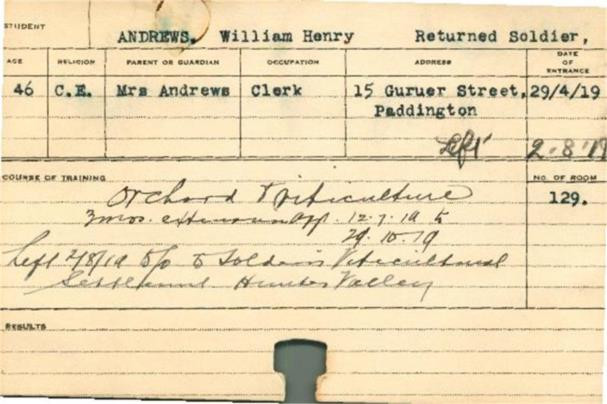 STUDENT
ANDREWS, William Henry Returned Soldier,
AGE RELIGION PARENT OR GUARDIAN OCCUPATION ADDRESS DATE OF ENTRANCE
46 C.E. Mrs Andrews Clerk 15 Guruer Street, 29/4/19
Paddington
Left 2-8-19
COURSE OF TRAINING NO. OF ROOM
Orchard & Viticulture 129.
3 mos. extension 12.7.19 to
29.10.19
Left 2/8/19 to Soldiers Viticultural
Settlement Hunter Valley
RESULTS